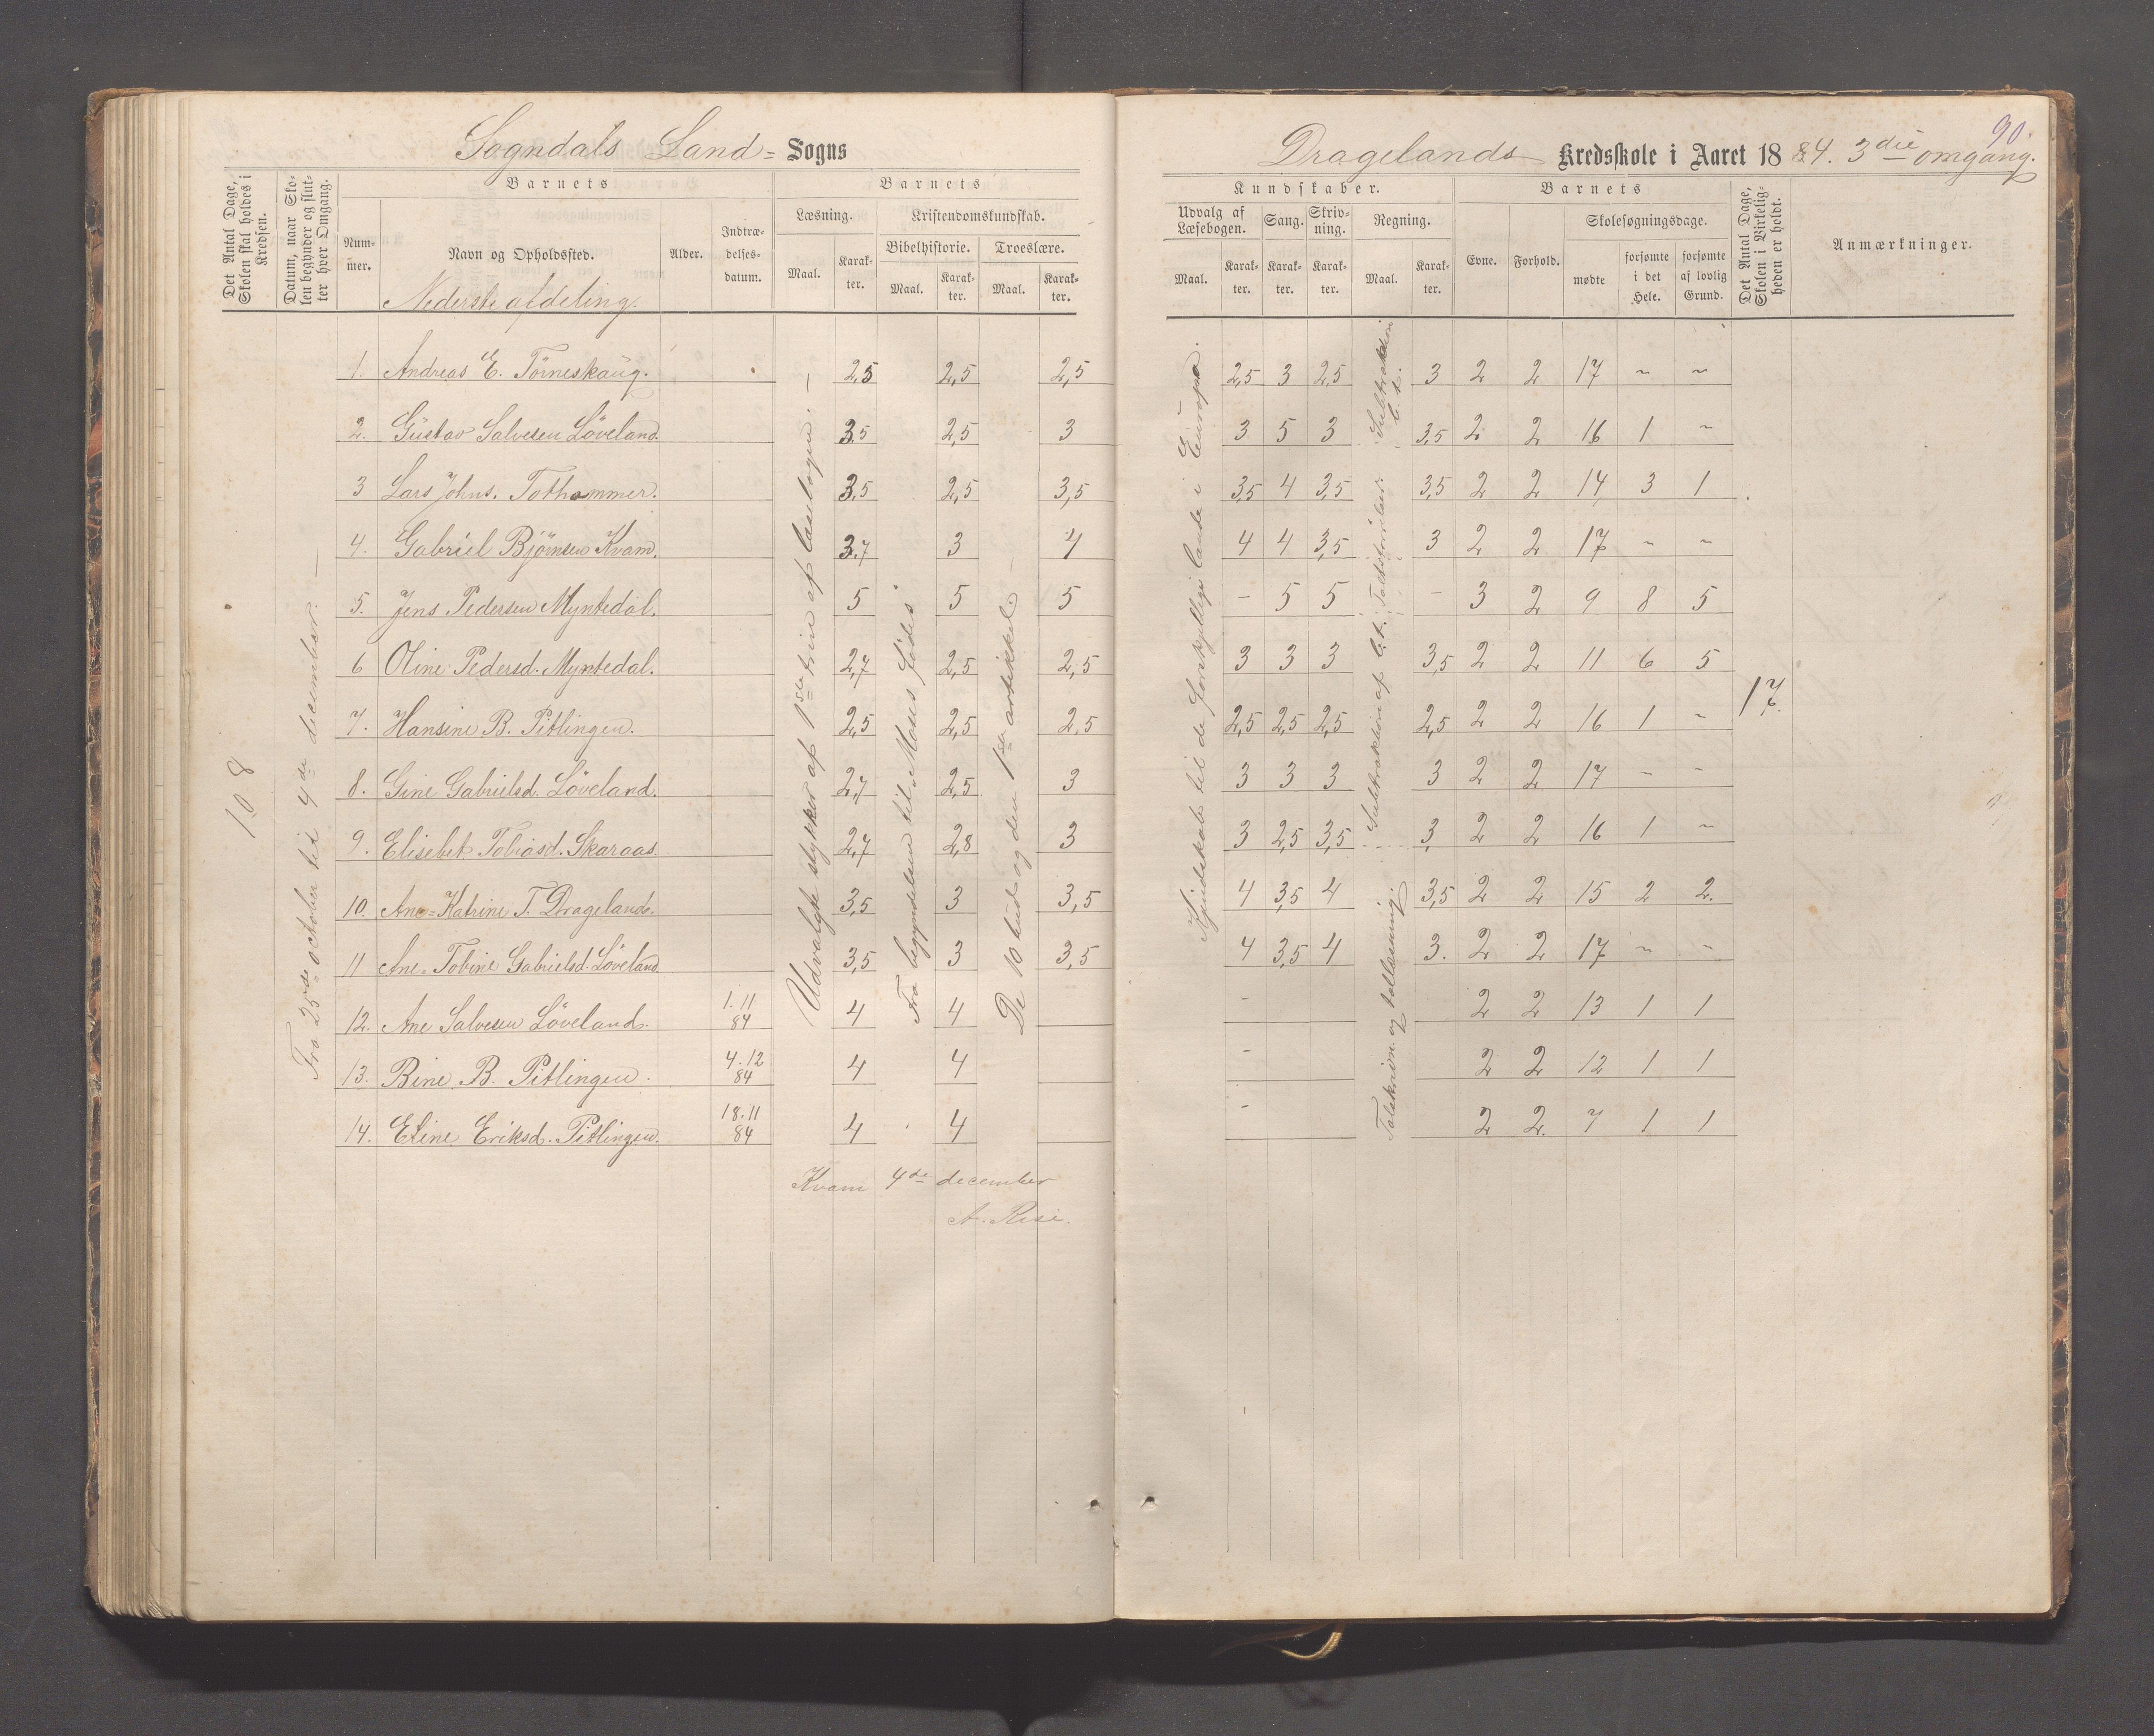 Sogndals Land= Sogns
Det Antal Dage, Skolen skal holdes i Kredsen.
Datum, naar Skolen begynder og slutter hver Omgang.
Barnets
Nummer.
Navn og Opholdssted.
Alder.
Indtrædelsesdatum.
Barnets
Læsning.
Maal.
Karakter.
Kristendomskundskab.
Bibelhistorie.
Maal.
Karakter.
Troeslære.
Maal.
Karakter.
Nederste afdeling.
108
Fra 25de october til 4de december. —
Udvalgte stykker af 1ste trin af læsebogen. —
Fra begyndelsen til Moses fødes
De 10 bud og den 1ste artikkel
1. Andreas E. Törneskaug. 2,5 2,5 2,5
2. Gustav Salvesen Löveland. 3,5 2,5 3
3 Lars Johns. Tothammer. 3,5 2,5 3,5
4. Gabriel Bjørnsen Kvam. 3,7 3 4
5. Jens Pedersen Myntedal. 5 5 5
6 Oline Pedersd. Myntedal. 2,7 2,5 2,5
7. Hansine B. Pitlingen. 2,5 2,5 2,5
8. Gine Gabrielsd. Löveland. 2,7 2,5 3
9. Elisebet Tobiasd. Skaraas. 2,7 2,8 3
10. Ane=Katrine T. Dragelands. 3,5 3 3,5
11 Ane=Tobine Gabrielsd. Löveland. 3,5 3 3,5
12. Ane Salvesen Löveland. 1.11 84 4 4
13. Bine B. Pitlingen. 4.12 84 4 4
14. Eline Eriksd. Pitlingen. 18.11 84 4 4
Kvam 4de december
A. Risi.
90.
Dragelands Kredsskole i Aaret 1884. 3die omgang.
Kundskaber.
Udvalg af Læsebogen.
Maal.
Karakter.
Sang.
Karakter.
Skrivning.
Karakter.
Regning.
Maal.
Karakter.
Barnets
Evne.
Forhold.
Skolesøgningsdage.
mødte
forsømte i det Hele.
forsømte af lovlig Grund.
Det Antal Dage, Skolen i Virkeligheden er holdt.
Anmærkninger.
Kjendskab til de forskjellige lande i Europa.
Subtraktion
Subtraktion af
Talskrivn. og tallæsning.
2,5 3 2,5 3 2 2 17 ~ ~
3 5 3 3,5 2 2 16 1 ~
3,5 4 3,5 3,5 2 2 14 3 1
4 4 3,5 3 2 2 17 ~ ~
– 5 5 – 3 2 9 8 5
3 3 3 3,5 2 2 11 6 5
2,5 2,5 2,5 2,5 2 2 16 1 ~
17.
3 3 3 3 2 2 17 – –
3 2,5 3,5 3 2 2 16 1 ~
4 3,5 4 3,5 2 2 15 2 2.
4 3,5 4 3. 2 2 17 ~ ~
– 2 2 13 1 1
– 2 2 12 1 1
– 2 2. 7 1 1